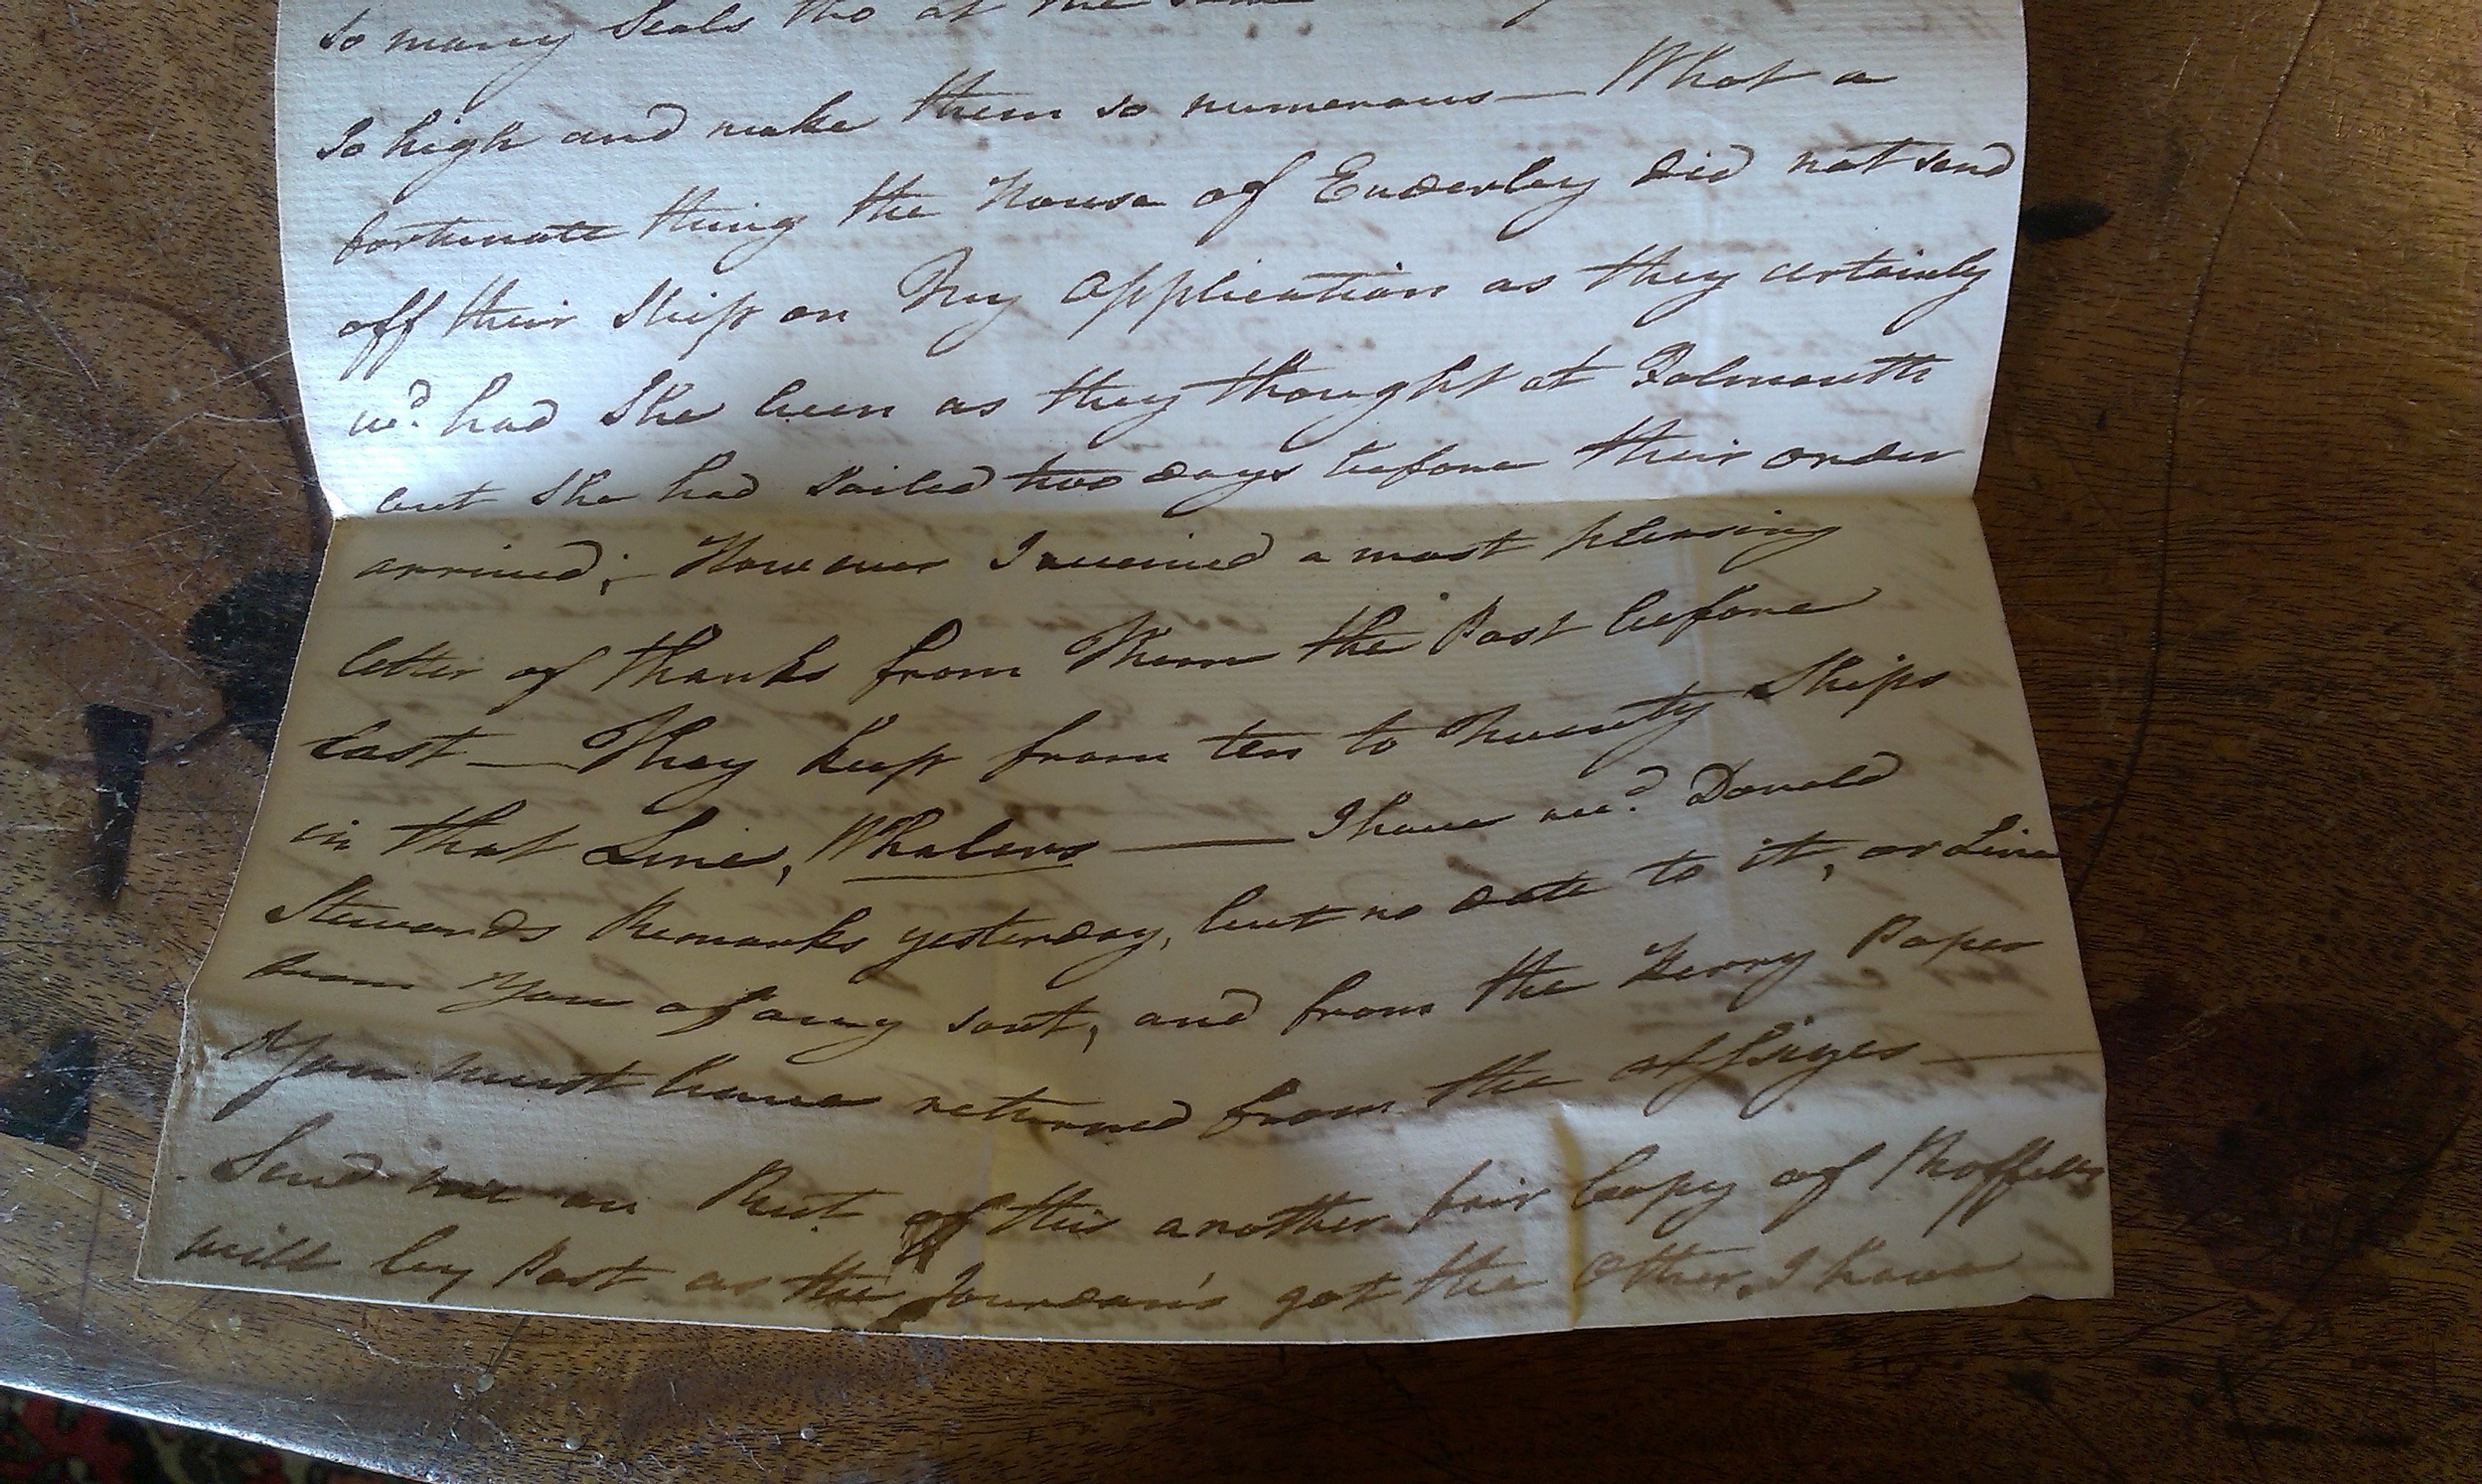 so many Seals tho at the same
So high and make them so numerous — What a
fortunate thing the House of Enderley did not send
off their Ship on My Application as they certainly
wd. had She been as they thought at Falmouth
but She had sailed two days before their order
arrived; — However I received a most pleasing
letter of thanks from Them the Post before
last — They keep from ten to twenty Ships
in that Line, Whalers — I have recd. Donald
Stewards Remarks yesterday, but no date to it, or Line
from You of any sort, and from the Kerry Paper
You must have returned from the assizes —
Send me on Rect. of this another fair Copy of
will by Post as the Jourdan's got the Other, I have